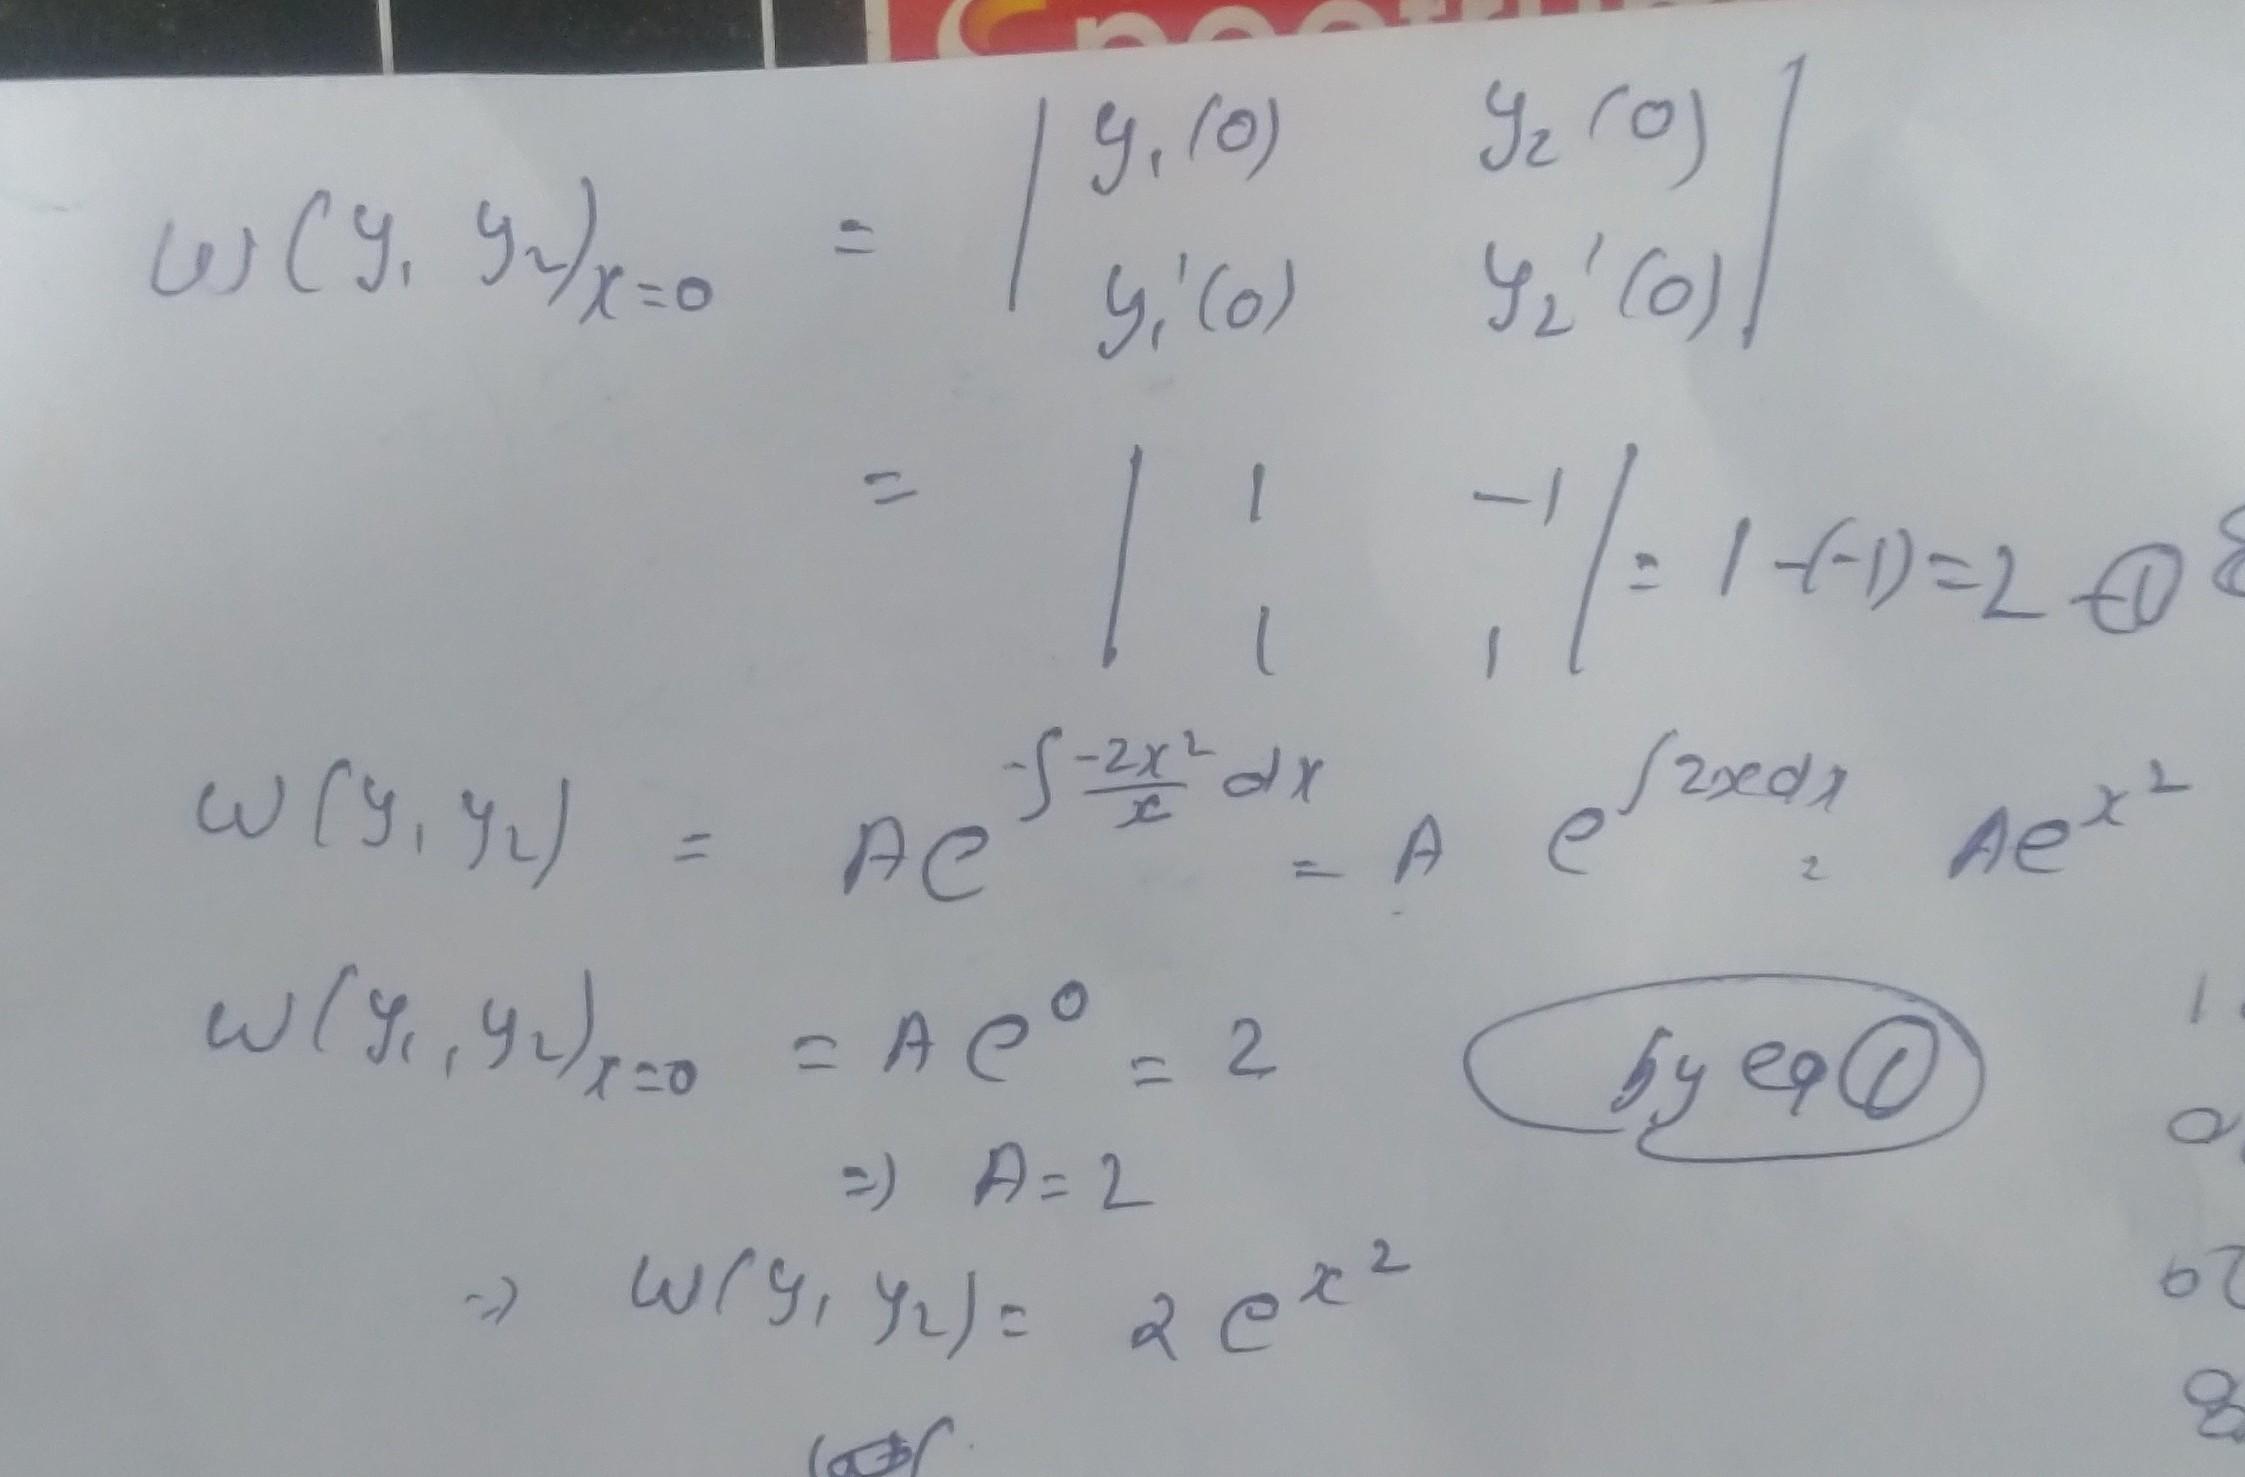 Spectrum
W(y₁ y₂)ₓ₌₀ = | y₁(0) y₂(0) |
| y₁'(0) y₂'(0) |
= | 1 -1 | = 1-(-1) = 2 -①
| 1 1 |
W(y₁ y₂) = Ae^(-∫ -2x²/x dx) = A e^(∫2xdx) = Ae^(x²)
W(y₁, y₂)ₓ₌₀ = Ae⁰ = 2 by eq ①
⇒ A = 2
⇒ W(y₁ y₂) = 2e^(x²)